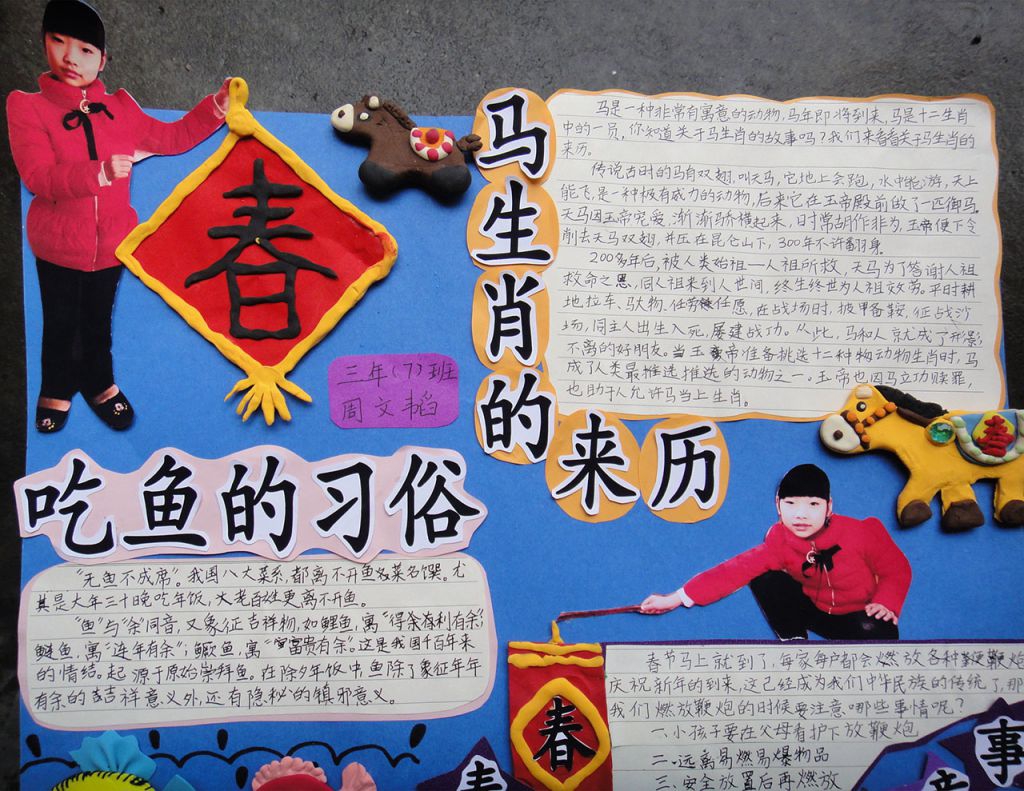 春
马生肖的来历
三年(7)班
周文韬
马是一种非常有寓意的动物,马年即将到来,马是十二生肖
中的一员,你知道关于马生肖的故事吗?我们来看看关于马生肖的
来历。
传说古时的马有双翅,叫天马,它地上会跑,水中能游,天上
能飞,是一种极有威力的动物,后来它在玉帝殿前做了一匹御马。
天马因玉帝宠爱,渐渐骄横起来,时常胡作非为,玉帝便下令
削去天马双翅,并压在昆仑山下,300年不许翻身。
200多年后,被人类始祖—人祖所救,天马为了答谢人祖
救命之恩,同人祖来到人世间,终生终世为人祖效劳。平时耕
地、拉车、驮物、任劳任愿,在战场时,披甲备鞍,征战沙
场,同主人出生入死,屡建战功。从此,马和人就成了形影
不离的好朋友。当玉帝准备挑选十二种动物生肖时,马
成了人类最推选推选的动物之一。玉帝也因马立功赎罪,
也助于人允许马当上生肖。
吃鱼的习俗
“无鱼不成席”。我国八大菜系,都离不开鱼名菜名馔。尤
其是大年三十晚吃年饭,大老百姓更离不开鱼。
“鱼”与“余”同音,又象征吉祥物,如鲤鱼,寓“得余有利有余”;
鲢鱼,寓“连年有余”;鳜鱼,寓“富贵有余”。这是我国千百年来
的情结。起源于原始崇拜鱼。在除夕年饭中鱼除了象征年年
有余的吉祥意义外,还有隐秘的镇邪意义。
春
春节马上就到了,每家每户都会燃放各种鞭炮
庆祝新年的到来,这已经成为我们中华民族的传统了,那
我们燃放鞭炮的时候要注意哪些事情呢?
一、小孩子要在父母看护下放鞭炮
二、远离易燃易爆物品
三、安全放置后再燃放
事